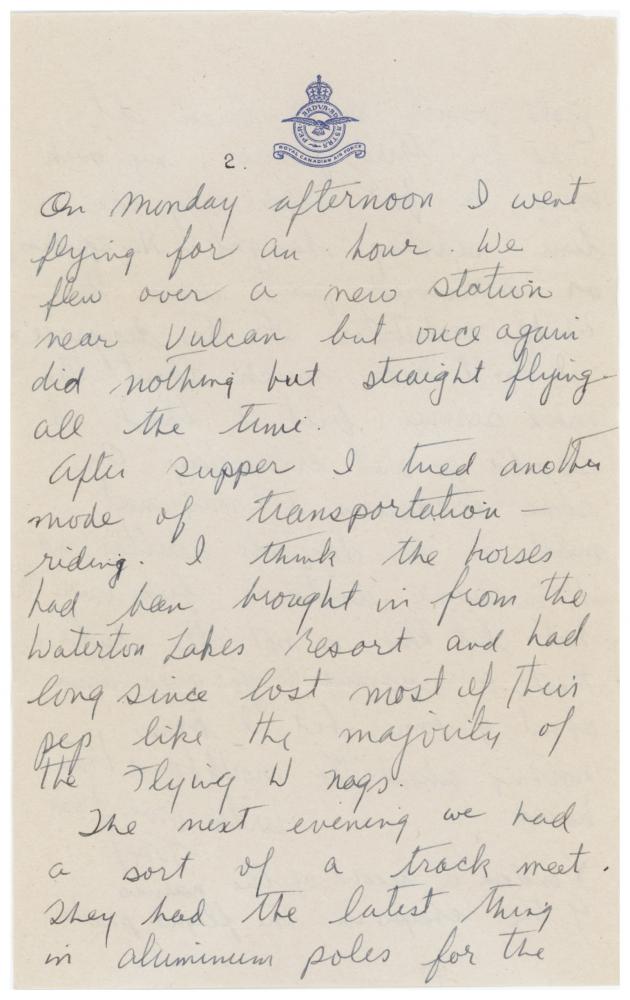 PER ARDVA AD ASTRA
ROYAL CANADIAN AIR FORCE
2.
On Monday afternoon I went
flying for an hour. We
flew over a new station
near Vulcan but once again
did nothing but straight flying
all the time.
After supper I tried another
mode of transportation —
riding. I think the horses
had been brought in from the
Waterton Lakes resort and had
long since lost most of their
pep like the majority of
the Flying U nags.
The next evening we had
a sort of a track meet.
They had the latest thing
in aluminum poles for the